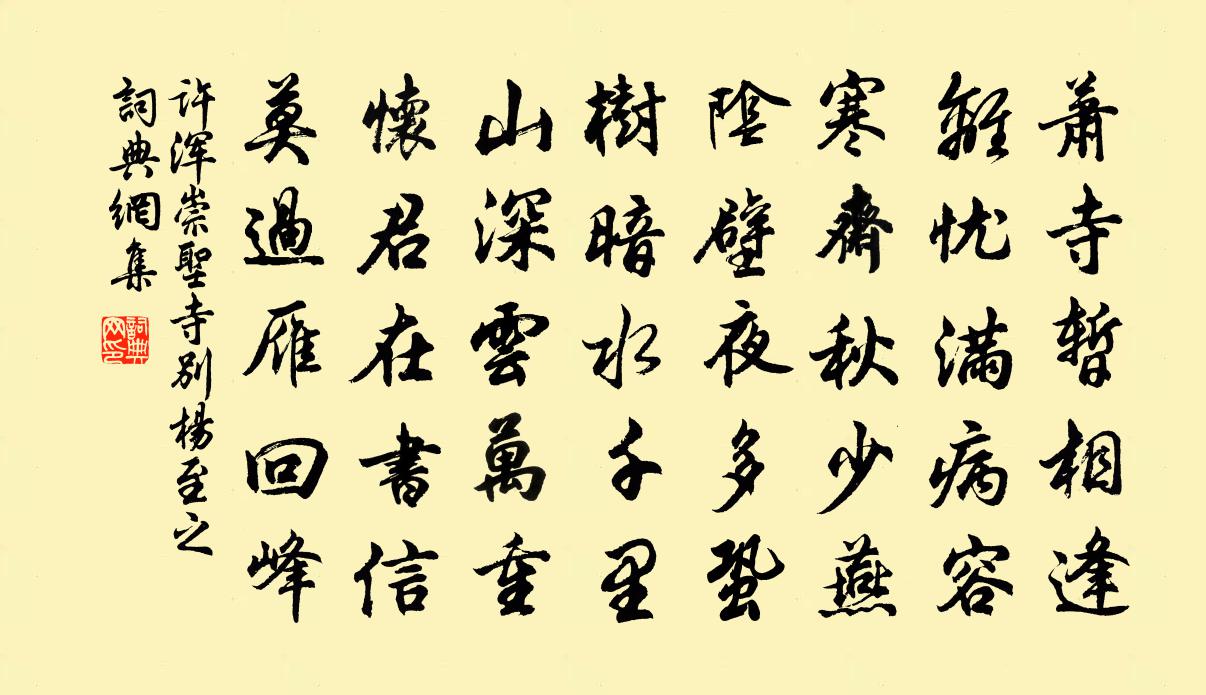 蕭寺暫相逢
離忧滿病容
寒齋秋少燕
陰壁夜多蛩
樹暗水千里
山深雲萬重
懷君在書信
莫過雁回峰
许浑崇聖寺别楊至之
詞典網集
詞典网印